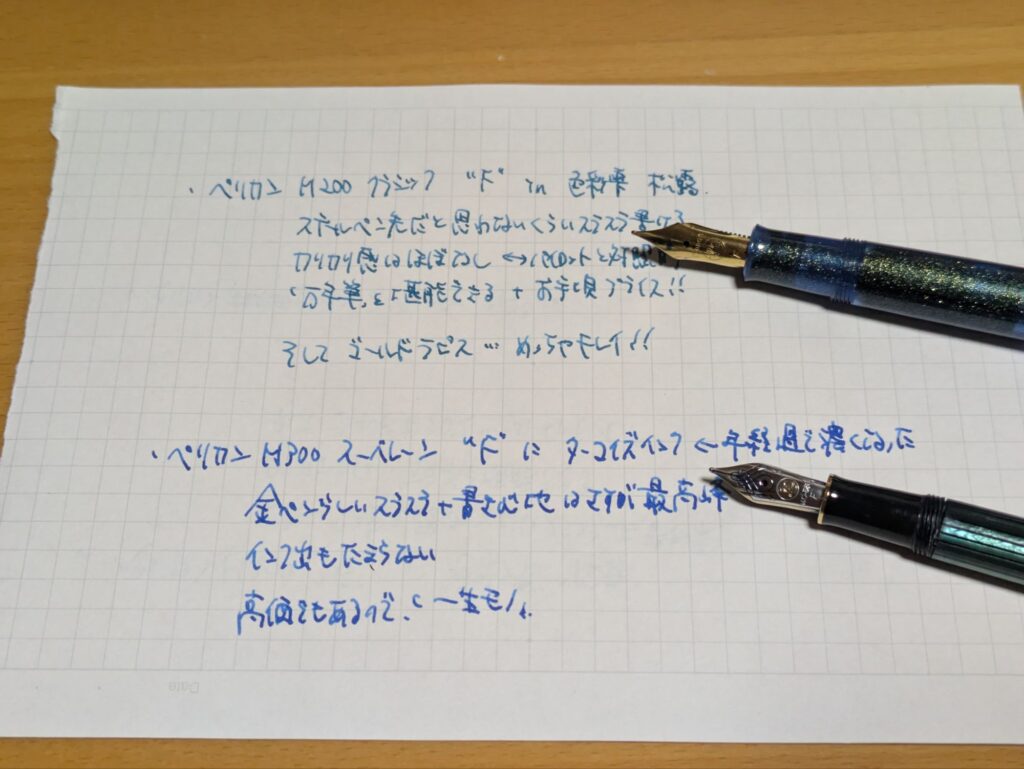 ・ペリカン M200 クラシック "F" in 色彩雫 松露.
スチールペン先だと思わないくらいスラスラ書ける
カリカリ感はほぼなし ↔
「万年筆」を堪能できる + お手頃プライス!!
そして ゴールドラピス … めっちゃキレイ!!
・ペリカン M300 スーベレーン "F" に ターコイズインク ← 年経過で濃くなった
金ペンらしいスラスラ+書き心地はさすが最高峰
インク出もたまらない
高価でもあるので、一生モノ.
Date